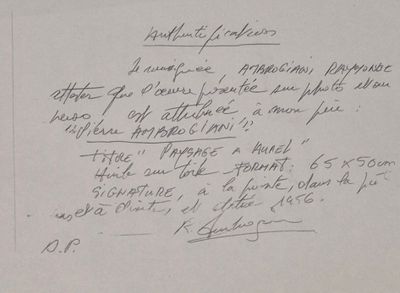 Authentification
Je soussignée, AMBROGIANI RAYMONDE
atteste que l'œuvre présentée sur photo et au
verso, est attribuée à mon père:
"Pierre AMBROGIANI"
TITRE "PAYSAGE A AUREL"
Huile sur toile FORMAT: 65 x 50 cm
SIGNATURE, à la pointe, dans la pâ
et à droite, et datée 1956.
R. Ambrogiani
D.P.